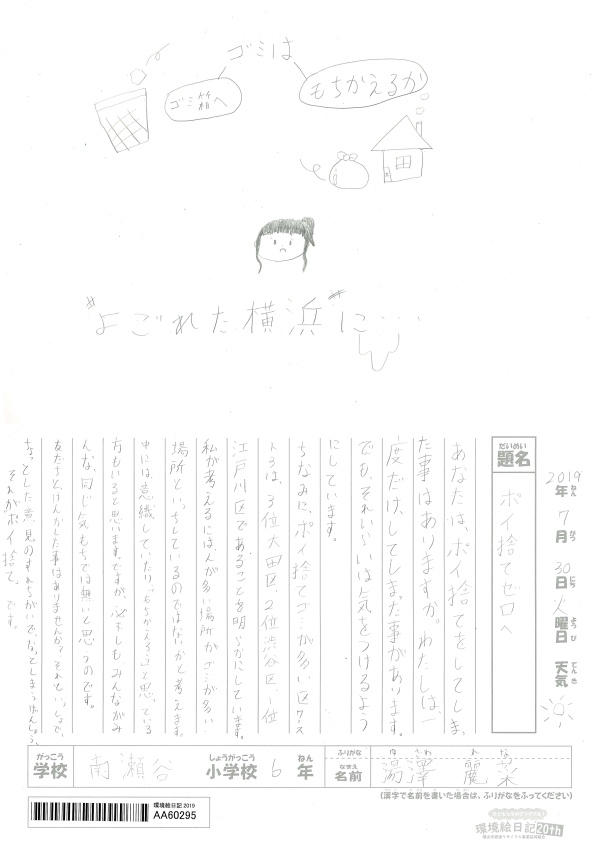 ゴミは
ゴミ箱へ
もちかえるか
"よごれた横浜"に…
2019年 7月 30日 火曜日 天気
ねん がつ にち ようび てんき
だいめい
題名
ポイ捨てゼロへ
あなたは、ポイ捨てをしてしまっ
た事はありますか。わたしは、一
度だけ、してしまった事があります。
でも、それいらいは気をつけるよう
にしています。
ちなみに、ポイ捨てゴミが多い区ワス
ト3は、3位大田区、2位渋谷区、1位
江戸川区であることを明らかにしています。
私が考えるにはんが多い場所がゴミが多い
場所といっちしているのではないかと考えます。
中には意織していたり、「もちかえろう」と思っている
方もいると思います。ですが、必ずしもみんながみ
んな、同じ気もちでは無いと思うのです。
友だちと、けんかした事はありませんか?それといっしょで、
ちょっとした意見のすれちがいで、なってしまうけんしょう、
それがポイ捨て。です。
がっこう しょうがっこう ねん ふりがな ゆ ざわ れ な
学校 南瀬谷 小学校 6年 なまえ 名前 湯澤 麗菜
(漢字で名前を書いた場合は、ふりがなをふってください)
環境絵日記2019
AA60295
環境絵日記20th